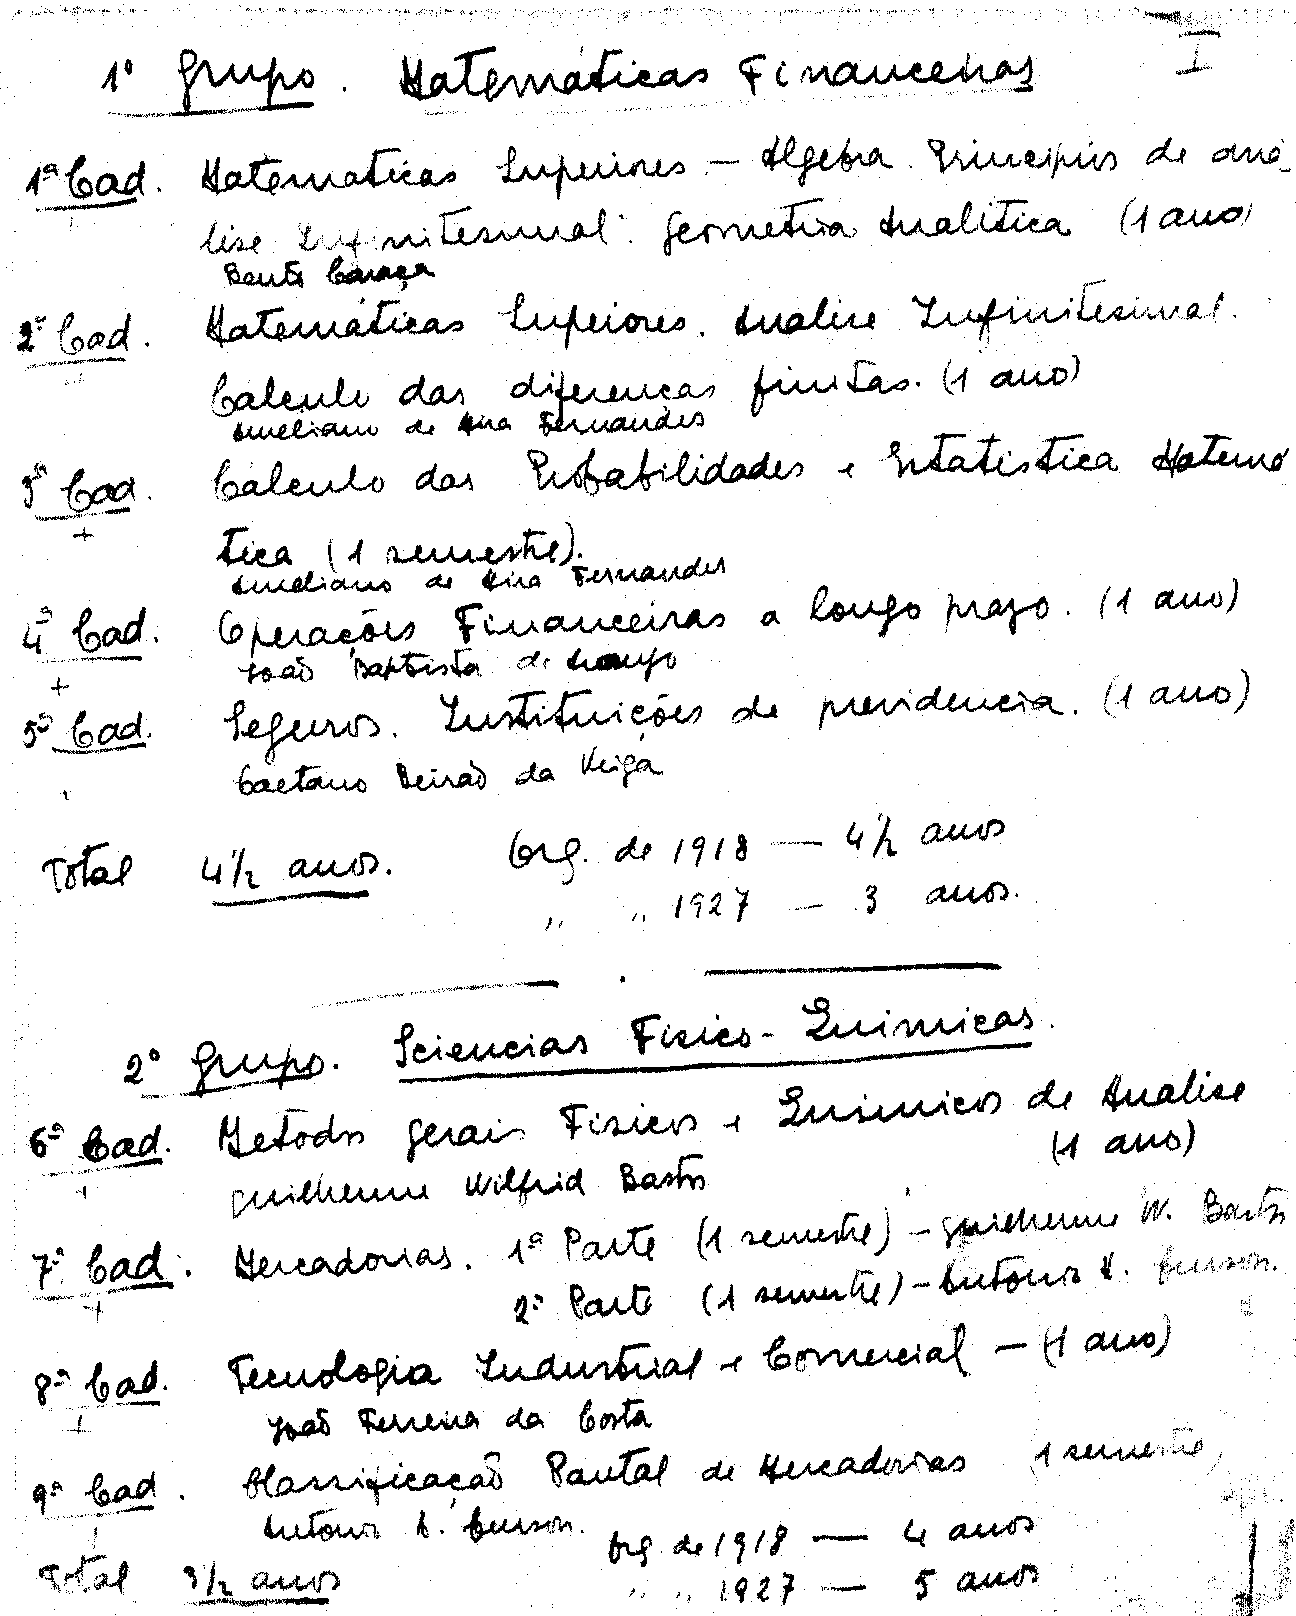 I
1º Grupo. Matemáticas Financeiras
1ª Cad. Matematicas Superiores — Algebra. Principios de aná-
lise Infinitesimal. Geometria Analitica (1 ano)
Bento Caraça
2ª Cad. Matemáticas Superiores. Analise Infinitesimal.
Calculo das diferenças finitas. (1 ano)
Aureliano de Mira Fernandes
3ª Cad. Calculo das Probabilidades e Estatistica Matema
tica (1 semestre).
Aureliano de Mira Fernandes
4ª Cad. Operações Financeiras a longo prazo. (1 ano)
João Baptista de Araujo
5ª Cad. Seguros. Instituições de previdencia. (1 ano)
Caetano Beirão da Veiga
Total 4½ anos. Org. de 1918 — 4½ anos
" " 1927 — 3 anos.
2º Grupo. Sciencias Fisico-Quimicas.
6ª Cad. Metodos gerais Fisicos e Quimicos de Analise
(1 ano)
Guilherme Wilfrid Bastos
7ª Cad. Mercadorias. 1ª Parte (1 semestre) - Guilherme W. Bastos
2ª Parte (1 semestre) - Antonio
8ª Cad. Tecnologia Industrial e Comercial — (1 ano)
João Ferreira da Costa
9ª Cad. Classificação Pautal de Mercadorias 1 semestre
Antonio
Org de 1918 — 4 anos
Total 3½ anos " " 1927 — 5 anos